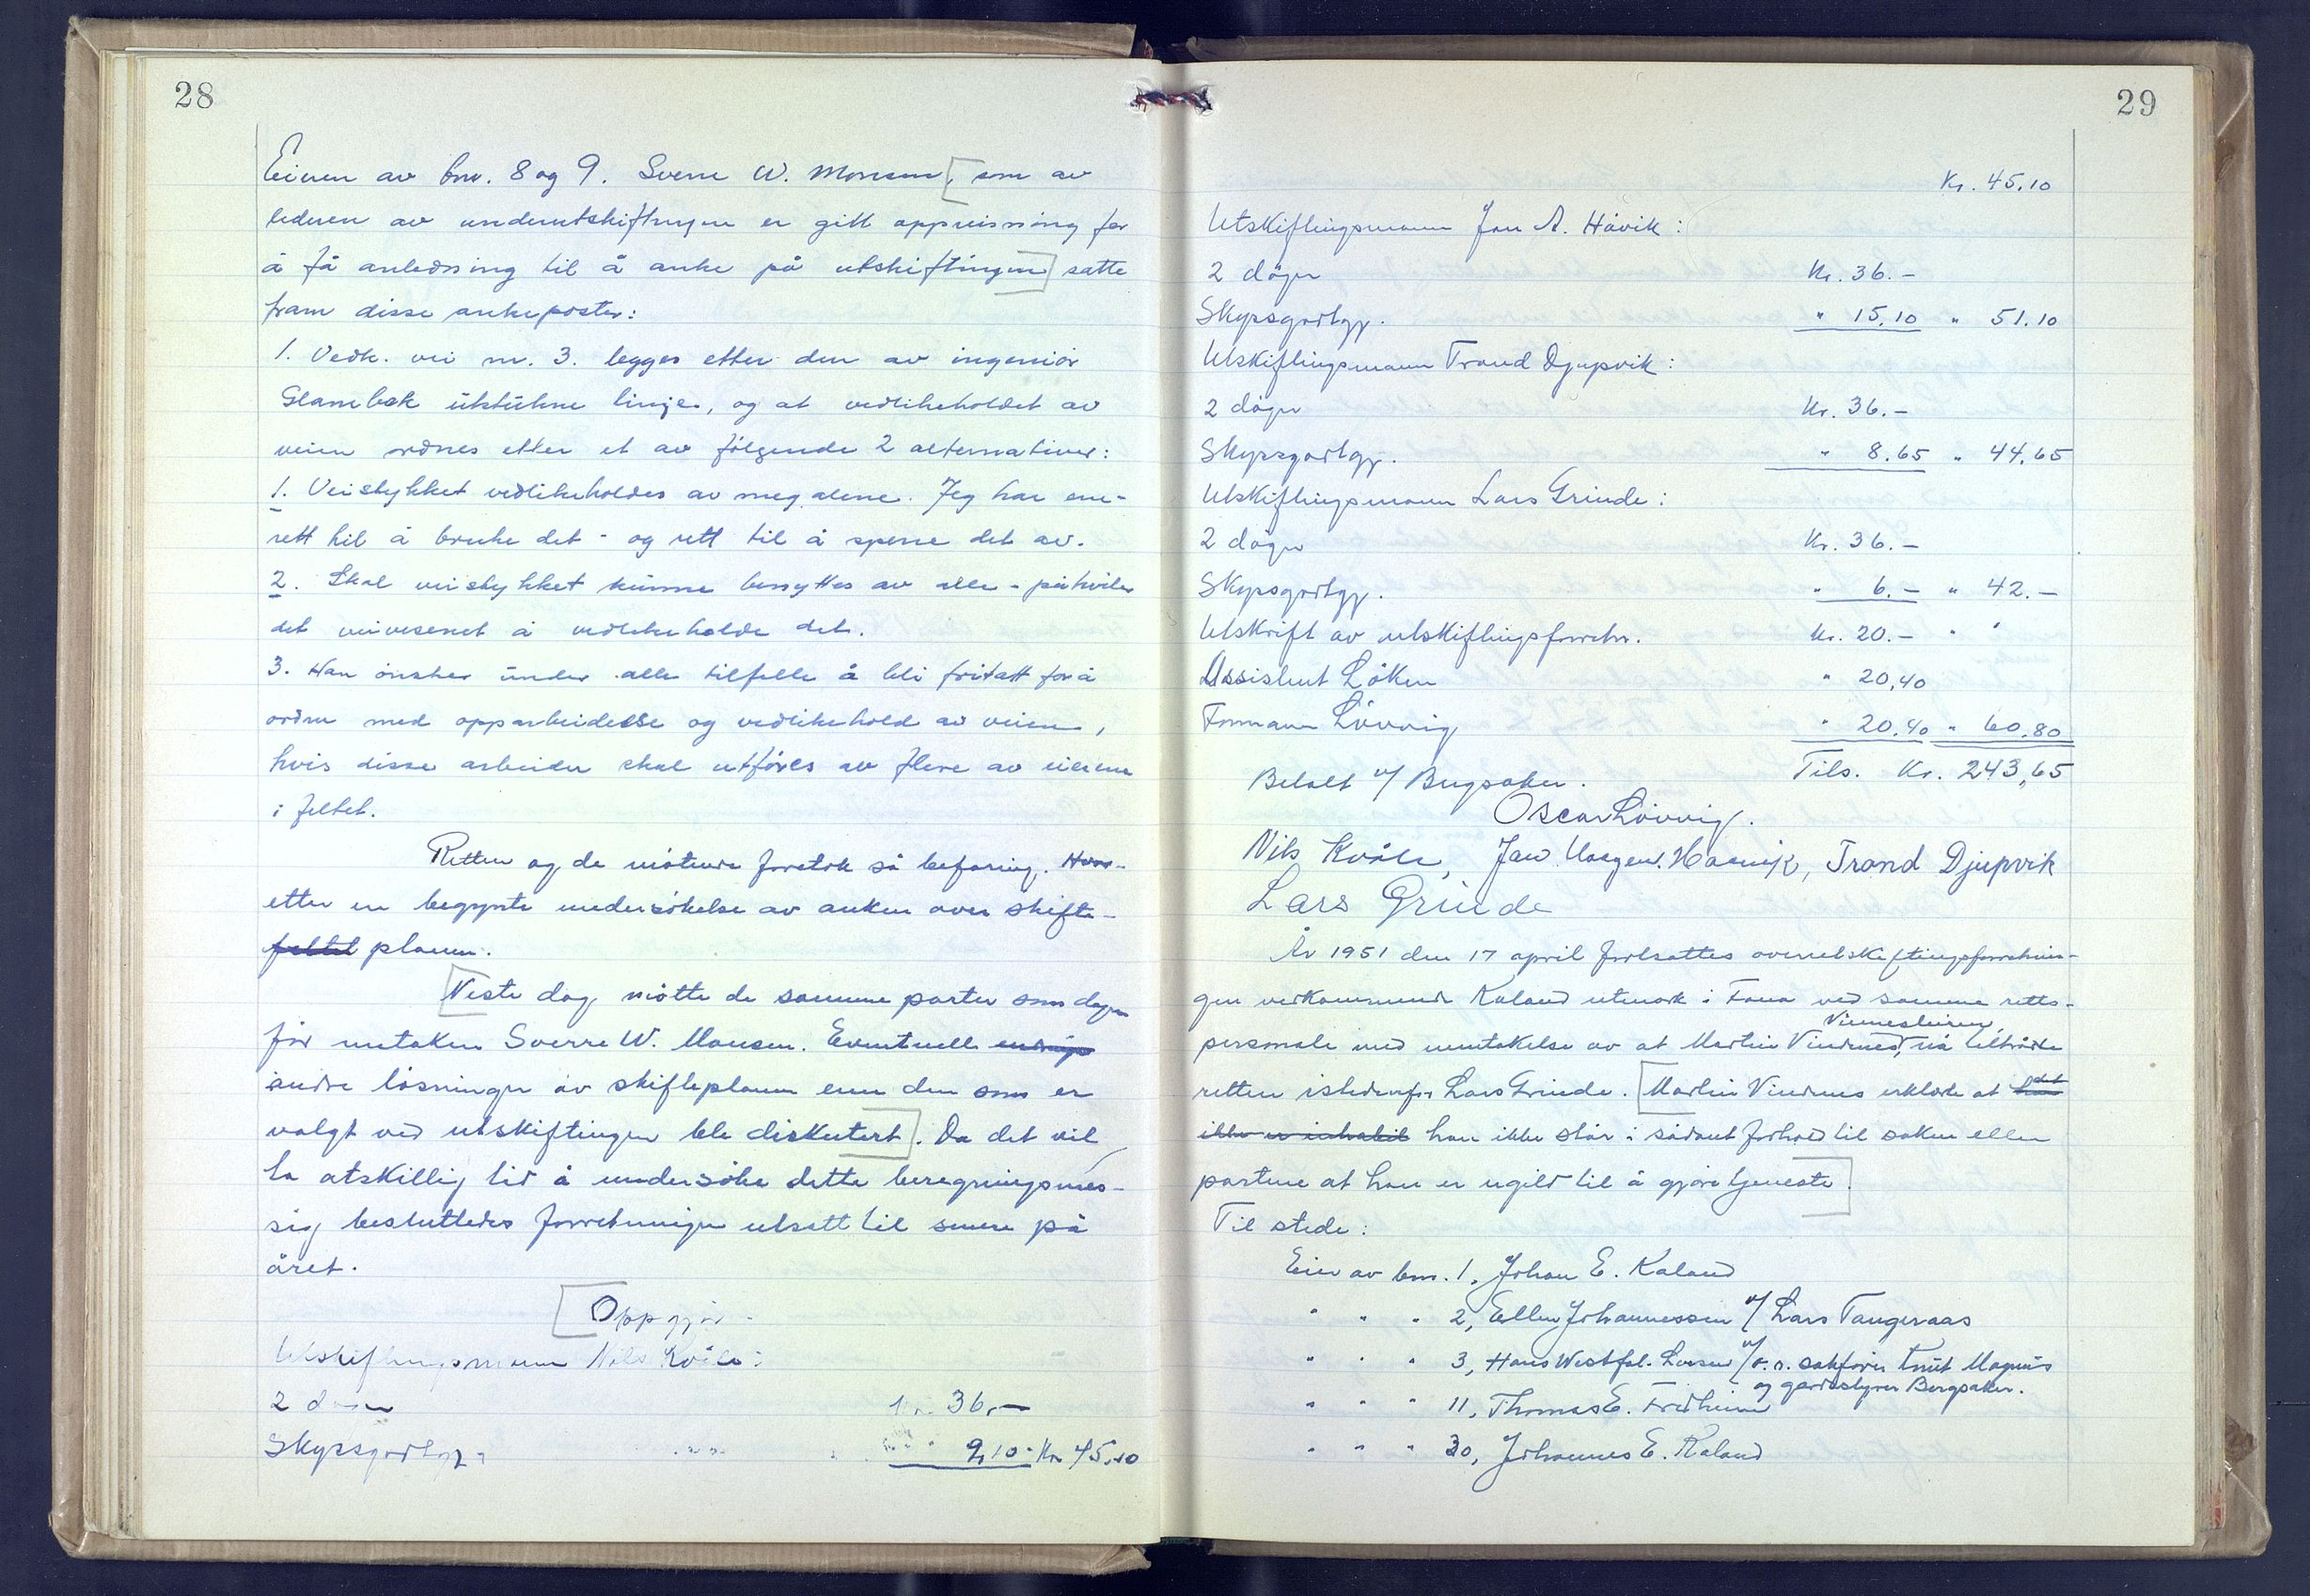 28
Eieren av bnr. 8 og 9. Sverre W. Monsen, som av
lederen av underutskiftningen er gitt oppreisning for
å få anledning til å anke på utskiftingen satte
fram disse ankeposter:
1. Vedk. vei nr. 3. legges etter den av ingeniør
Glambek utstukne linje, og at vedlikeholdet av
veien ordnes etter et av følgende 2 alternativer:
1. Veistykket vedlikeholdes av meg alene. Jeg har ene-
rett til å bruke det - og rett til å sperre det av.
2. Skal veistykket kunne benyttes av alle - påhviler
det veivesenet å vedlikeholde det.
3. Han ønsker under alle tilfelle å bli fritatt for å
ordne med opparbeidelse og vedlikehold av veien,
hvis disse arbeider skal utføres av flere av eierene
i feltet.
Retten og de møtende foretok så befaring. Hver-
etter en begynte undersøkelse av anken over skifte-
feltet planen.
Neste dag møtte de samme parter som dagen
før untaken Sverre W. Monsen. Eventuell
andre løsninger av skifteplanen enn den som er
valgt ved utskiftingen ble diskutert. Da det vil
ta atskillig tid å undersøke dette beregningsmes-
sig besluttedes forretningen utsatt til senere på
året.
Oppgjør
Utskiftingsmann Nils Kvåle:
2 døgn Kr. 36,-
Skyssgodtgj. " 9,10 - Kr 45,10
29
Kr. 45,10
Utskiftingsmann Jon A. Håvik:
2 døgn Kr. 36.-
Skyssgodtgj. " 15,10 " 51.10
Utskiftingsmann Trond Djupvik:
2 døgn Kr. 36.-
Skyssgodtgj. " 8.65 " 44,65
Utskiftingsmann Lars Grinde:
2 døgn Kr. 36.-
Skyssgodtgj. " 6.- " 42.-
Utskrift av utskiftingsforretn. Kr. 20.- " "
Assistent Løken " 20,40
Formann Løvvig " 20,40 " 60,80
Betalt v/ Bergsaker. Tils. Kr. 243,65
Oscar Løvvig.
Nils Kvåle, Jon Haavik, Trond Djupvik
Lars Grinde
År 1951 den 17 april fortsattes overutskiftingsforretnin-
gen vedkommende Kaland utmark i Fana ved samme retts-
personale med unntakelse av at Martin Vindenes, nå tiltrådte
retten istedenfor Lars Grinde. Martin Vindenes erklærte at det
ikke er inhabil han ikke står i sådant forhold til saken eller
partene at han er ugild til å gjøre tjeneste.
Til stede:
Eier av bnr. 1, Johan E. Kaland
" " " 2, Ellen Johannessen v/ Lars Tangeraas
" " " 3, Hans Westfal-Larsen v/ o.r. sakfører Knut Magnus
og gardsstyrer Bergsaker.
" " " 11, Thomas E. Fredheim
" " " 30, Johannes E. Kaland